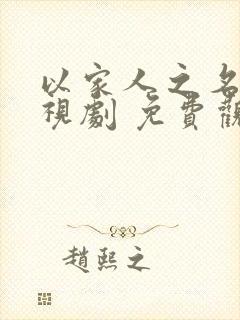 以家人之名
視劇 免費觀
趙熙之